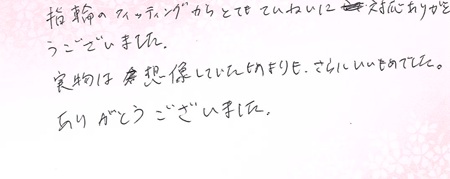 指輪のフィッティングからとてもていねいに対応ありがと
うございました。
実物は想像していたものよりも、さらにいいものでした。
ありがとうございました。